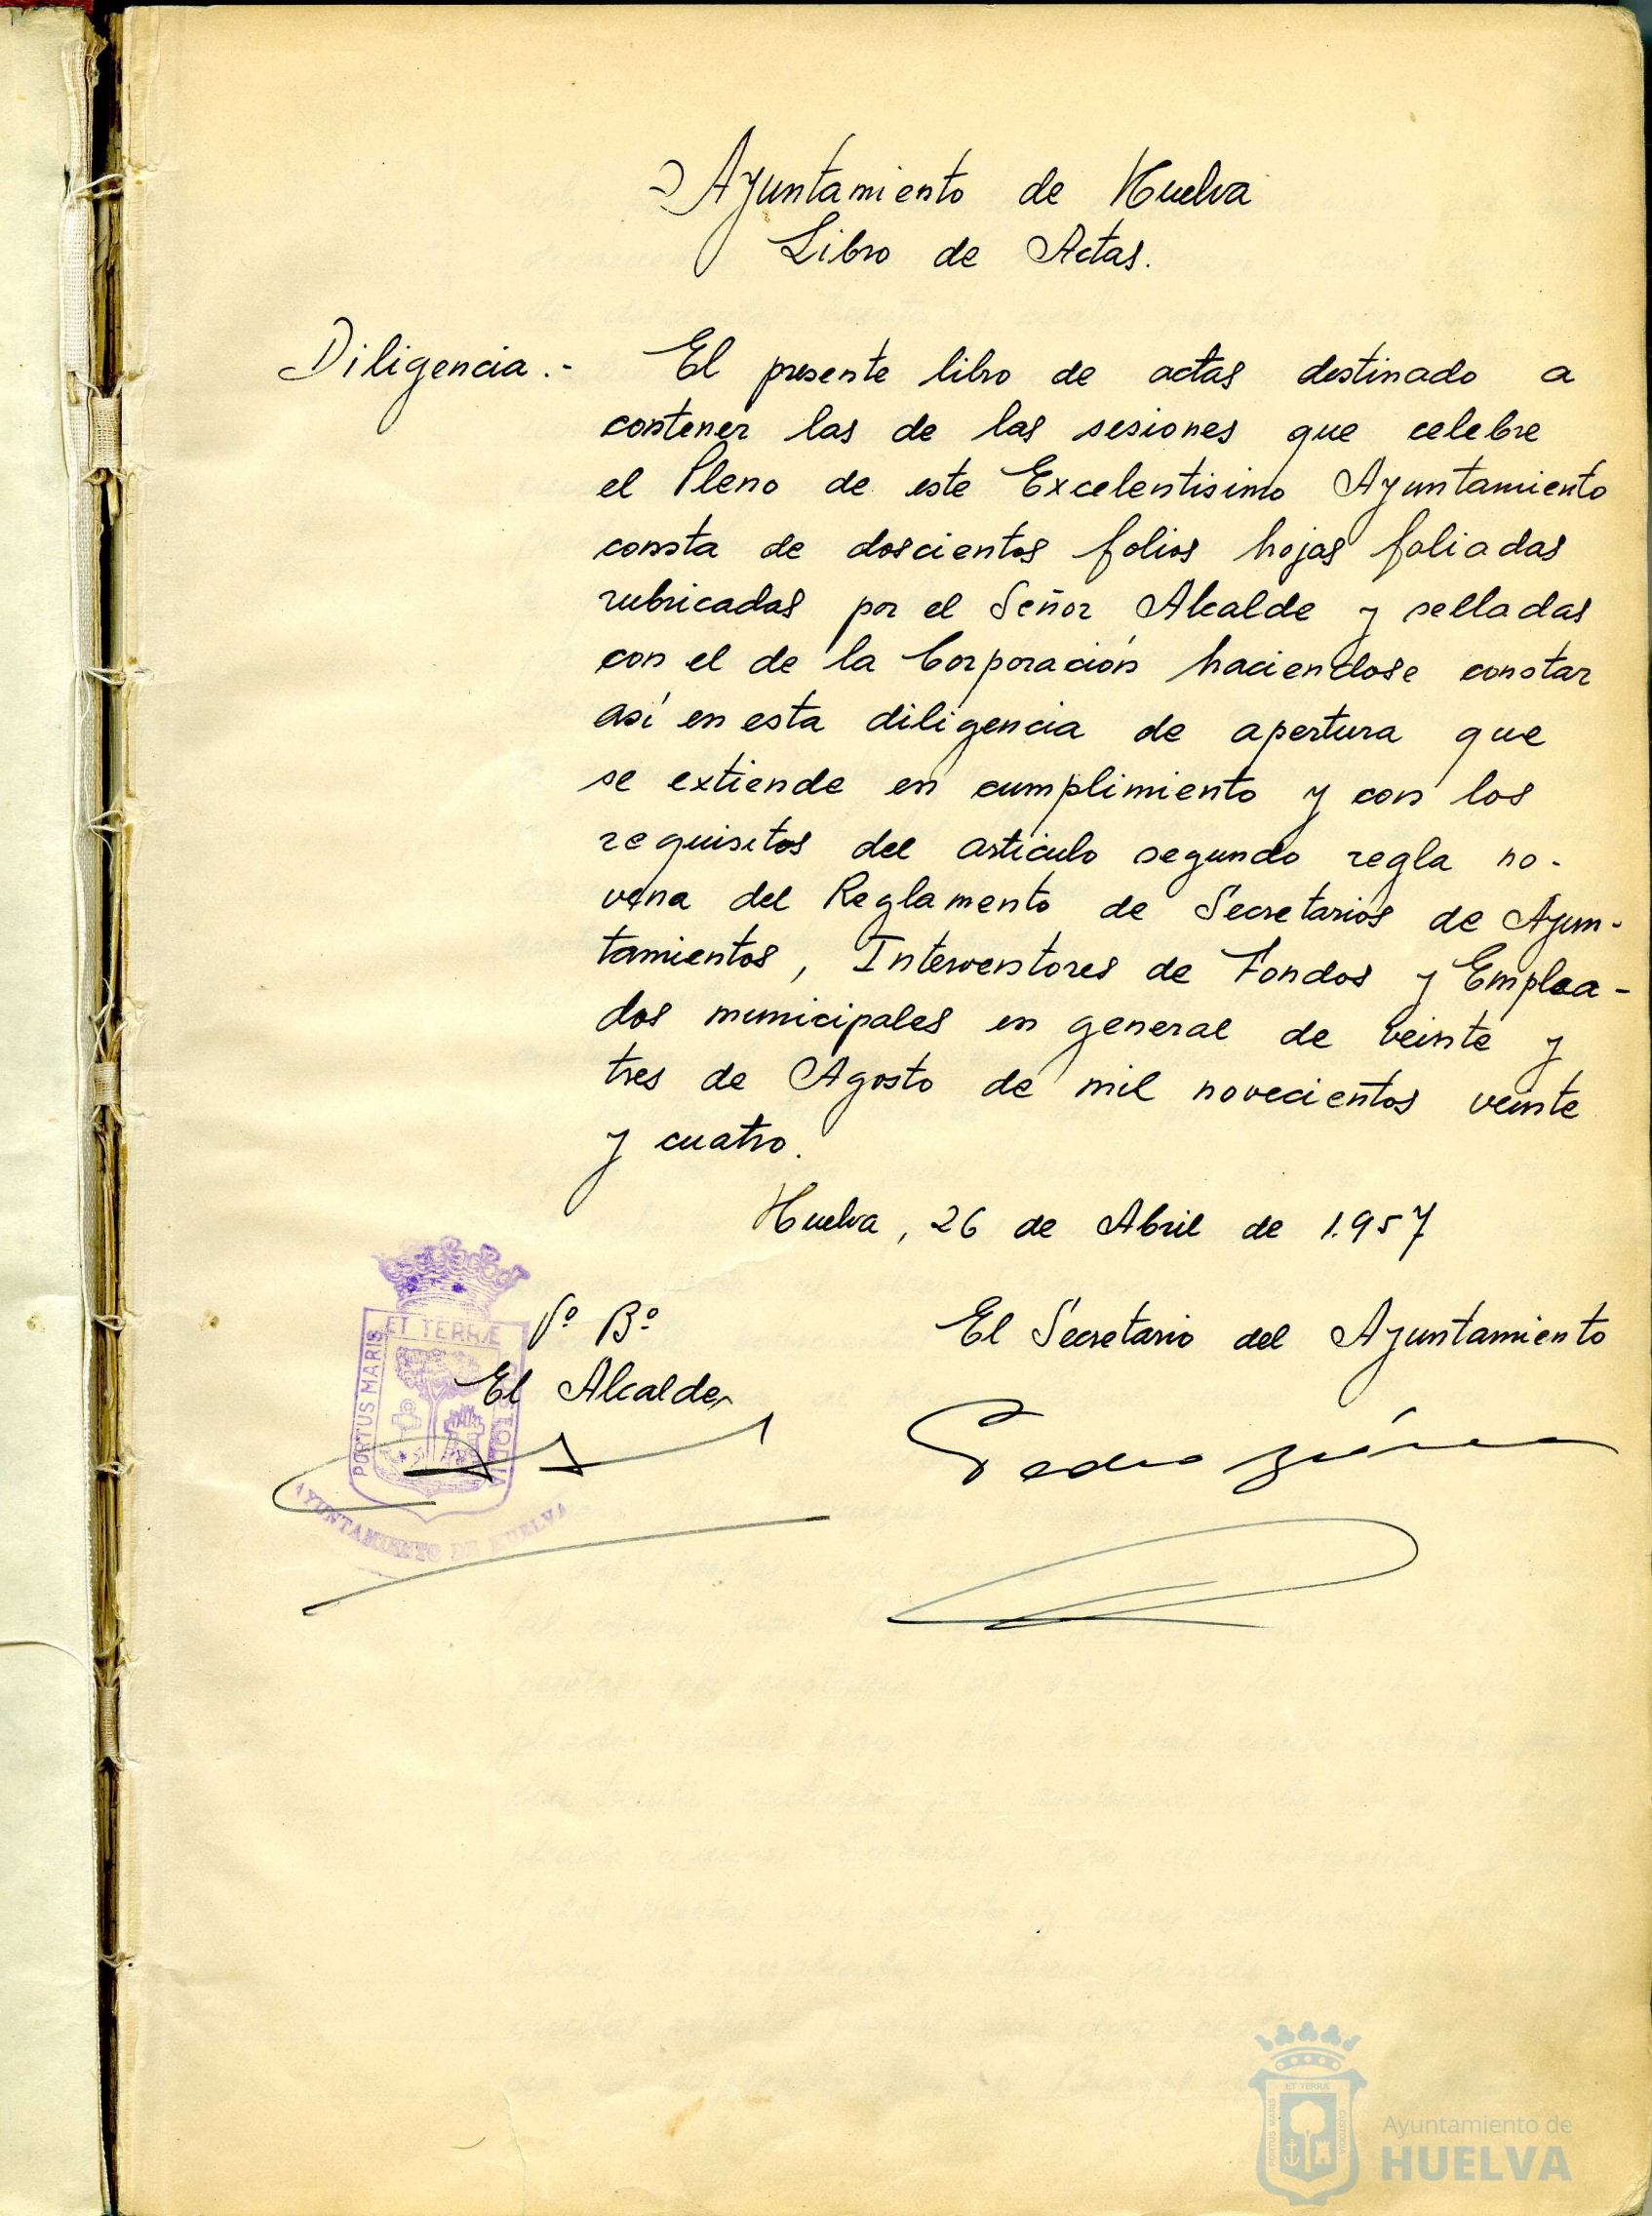 Ayuntamiento de Huelva
Libro de Actas.
Diligencia.- El presente libro de actas destinado a
contener las de las sesiones que celebre
el Pleno de este Excelentisimo Ayuntamiento
consta de doscientos folios hojas foliadas
rubricadas por el Señor Alcalde y selladas
con el de la Corporación haciendose constar
así en esta diligencia de apertura que
se extiende en cumplimiento y con los
requisitos del articulo segundo regla no-
vena del Reglamento de Secretarios de Ayun-
tamientos, Interventores de Fondos y Emplea-
dos municipales en general de veinte y
tres de Agosto de mil novecientos veinte
y cuatro.
Huelva, 26 de Abril de 1.957
Vº Bº
El Alcalde,
El Secretario del Ayuntamiento
Pedro
PORTUS MARIS
ET TERRÆ
CUSTODIA
AYUNTAMIENTO DE HUELVA
PORTUS MARIS
ET TERRÆ
CUSTODIA
Ayuntamiento de
HUELVA